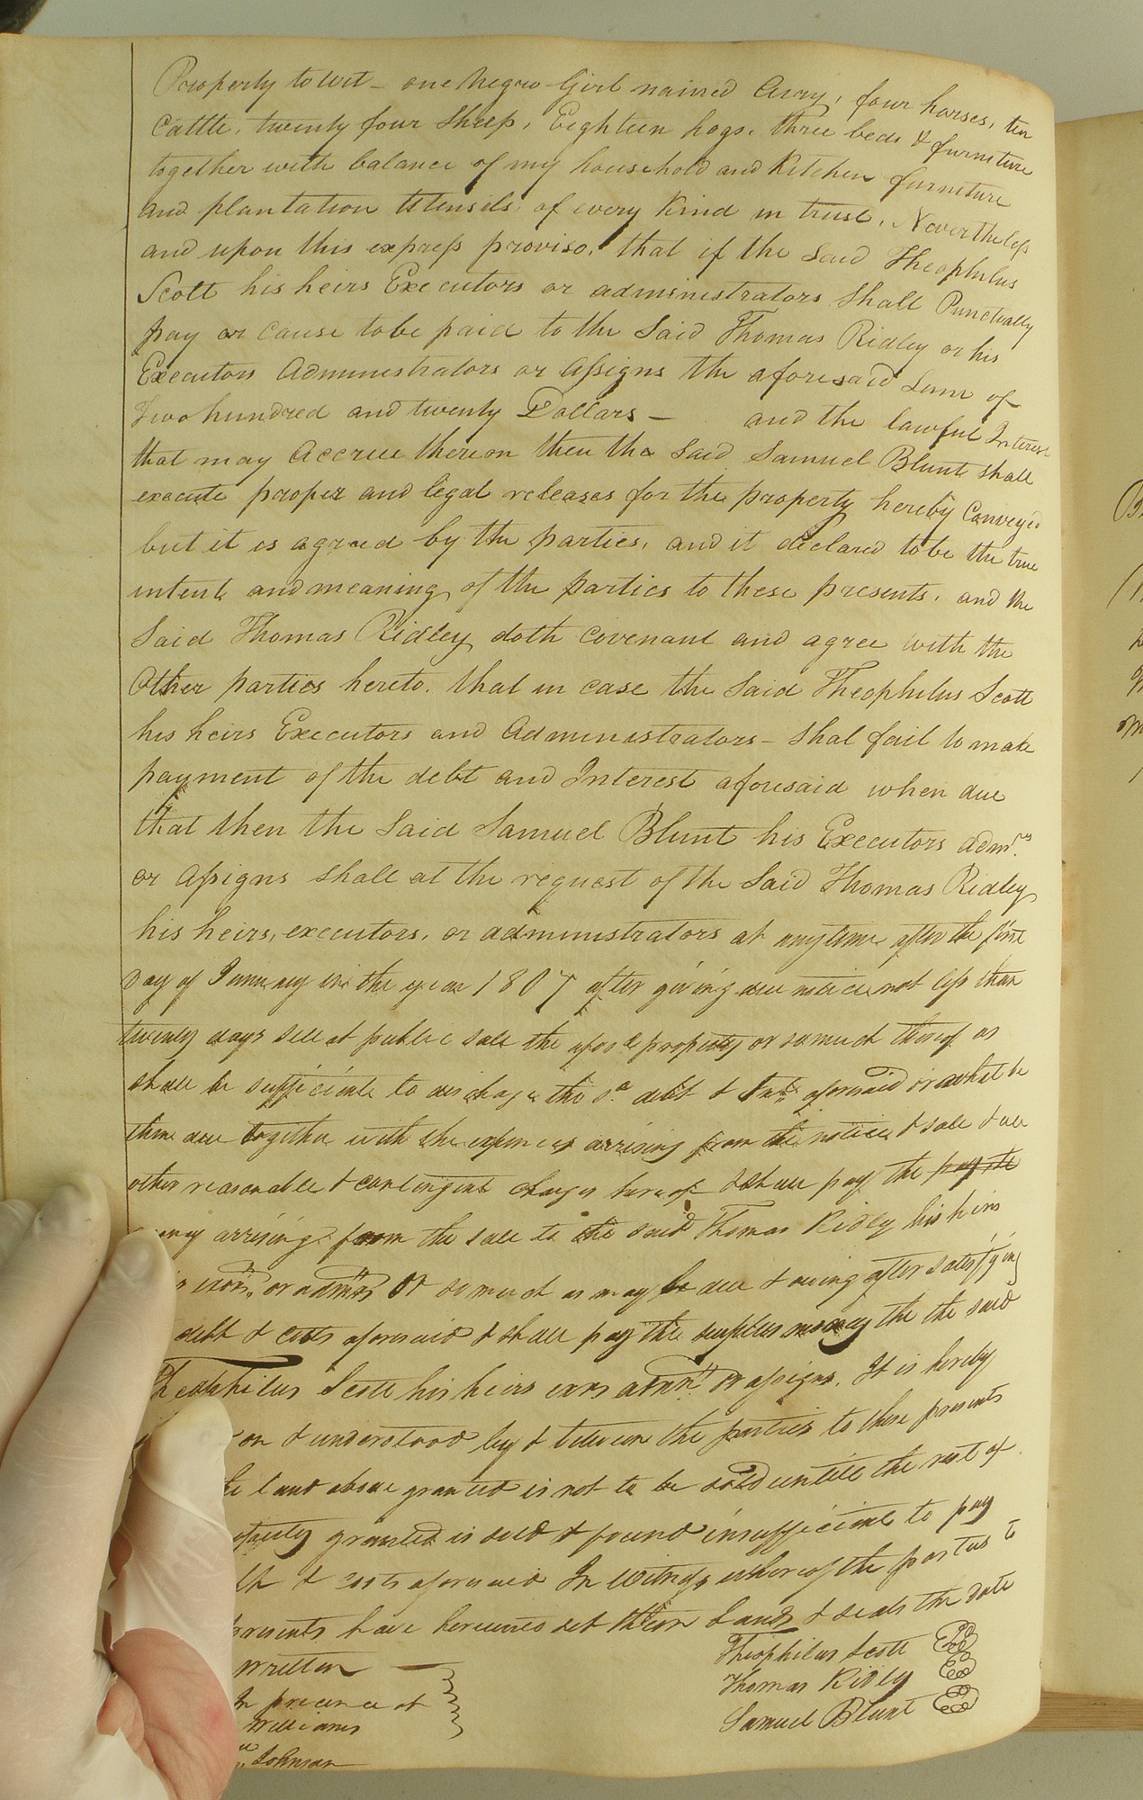 Property to wit - one Negro Girl named Avey, four horses, ten
Cattle, twenty four Sheep, Eighteen hogs, three beds & furniture
together with balance of my household and Kitchen furniture
and plantation Utensils of every Kind in trust, Nevertheless
and upon this express proviso, that if the Said Theophilus
Scott his heirs Executors or administrators Shall Punctually
pay or cause to be paid to the Said Thomas Ridley or his
Executors Administrators or Assigns the aforesaid Sum of
Two hundred and twenty Dollars - and the lawful Interest
that may Accrue thereon then the Said Samuel Blunt Shall
execute proper and legal releases for the property hereby Conveyed
but it is agreed by the parties, and it declared to be the true
intent and meaning of the parties to these presents, and the
Said Thomas Ridley doth Covenant and agree with the
Other parties hereto, that in case the Said Theophilus Scott
his heirs Executors and Administrators - Shal fail to make
payment of the debt and Interest aforesaid when due
that then the Said Samuel Blunt his Executors Admrs
or Assigns Shall at the request of the Said Thomas Ridley
his heirs, executors, or administrators at any time after the first
Day of January in the year 1807 after giving due notice not less than
twenty days sell at public sale the afosd property or so much thereof as
shall be sufficient to discharge the sd debt & Int aforesaid or what be
then due together with the expences arrising from the notice & sale & all
other reasonable & contingent charges hereof & shall pay the
arrising from the sale to the said Thomas Ridley his heirs
or admrs or so much as may be due & owing after satisfying
debt & costs aforesaid & shall pay the surplus money the the said
Theophilus Scott his heirs exrs admrs or assigns. It is hereby
on & understood by & between the parties to these presents
land above granted is not to be sold untill the rest of
granted is sold & found insufficient to pay
& costs aforesaid In Witness whereof the parties to
presents have hereunto set their hands & seals the date
written
Theophilus Scott
Thomas Ridley
Samuel Blunt
In presence of
Williams
Johnson